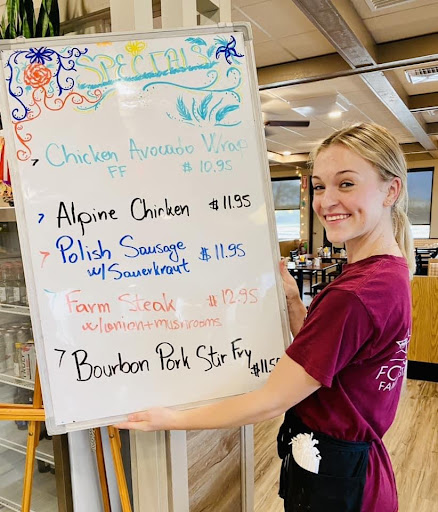 SPECIALS
Chicken Avocado Wrap
FF $ 10.95
Alpine Chicken $ 11.95
Polish Sausage
w/ Sauerkraut $ 11.95
Farm Steak $ 12.95
w/onion + mushrooms
Bourbon Pork Stir Fry $11.95